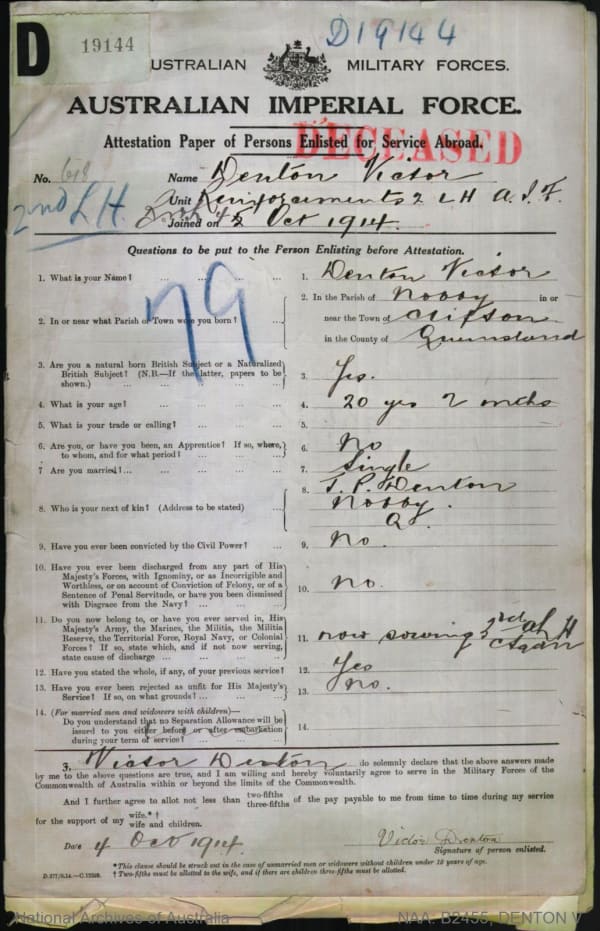 D
19144
D19144
AUSTRALIAN MILITARY FORCES.
AUSTRALIAN IMPERIAL FORCE.
Attestation Paper of Persons Enlisted for Service Abroad.
DECEASED
No. 618 Name Denton Victor
2nd L.H.
Unit Reinforcements 2 L H A. I. F.
Joined on 5 Oct 1914.
Questions to be put to the Person Enlisting before Attestation.
79
1. What is your Name? ... 1. Denton Victor
2. In or near what Parish or Town were you born? ... 2. In the Parish of Nobby in or
near the Town of Clifton
in the County of Queensland
3. Are you a natural born British Subject or a Naturalized
British Subject? (N.B.—If the latter, papers to be
shown.) ... 3. Yes.
4. What is your age? ... 4. 20 yrs 2 mths
5. What is your trade or calling? ... 5.
6. Are you, or have you been, an Apprentice? If so, where,
to whom, and for what period? ... 6. No
7 Are you married? ... 7. Single
8. Who is your next of kin? (Address to be stated) ... 8. T. P. Denton
Nobby.
Q.
9. Have you ever been convicted by the Civil Power? ... 9. No.
10. Have you ever been discharged from any part of His
Majesty's Forces, with Ignominy, or as Incorrigible and
Worthless, or on account of Conviction of Felony, or of a
Sentence of Penal Servitude, or have you been dismissed
with Disgrace from the Navy? ... 10. No.
11. Do you now belong to, or have you ever served in, His
Majesty's Army, the Marines, the Militia, the Militia
Reserve, the Territorial Force, Royal Navy, or Colonial
Forces? If so, state which, and if not now serving,
state cause of discharge ... 11. now serving L H
12. Have you stated the whole, if any, of your previous service? 12. Yes
13. Have you ever been rejected as unfit for His Majesty's
Service? If so, on what grounds? ... 13. No.
14. (For married men and widowers with children)—
Do you understand that no Separation Allowance will be
issued to you either before or after embarkation
during your term of service? ... 14.
I, Victor Denton do solemnly declare that the above answers made
by me to the above questions are true, and I am willing and hereby voluntarily agree to serve in the Military Forces of the
Commonwealth of Australia within or beyond the limits of the Commonwealth.
And I further agree to allot not less than two-fifths
three-fifths of the pay payable to me from time to time during my service
for the support of my wife.*†
wife and children.
Date 4 Oct 1914 Victor Denton
Signature of person enlisted.
*This clause should be struck out in the case of unmarried men or widowers without children under 18 years of age.
† Two-fifths must be allotted to the wife, and if there are children three-fifths must be allotted.
National Archives of Australia NAA: B2455, DENTON V